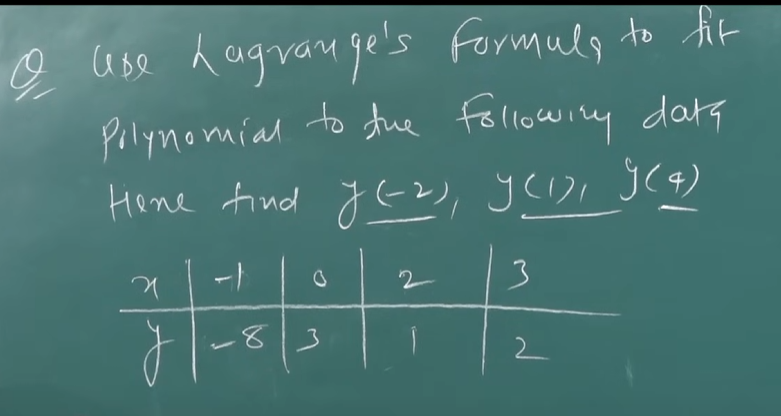 Q Use Lagrange's formula to fit
Polynomial to the following data
Hene find y(-2), y(1), y(4)
x | -1 | 0 | 2 | 3
y | -8 | 3 | 1 | 2